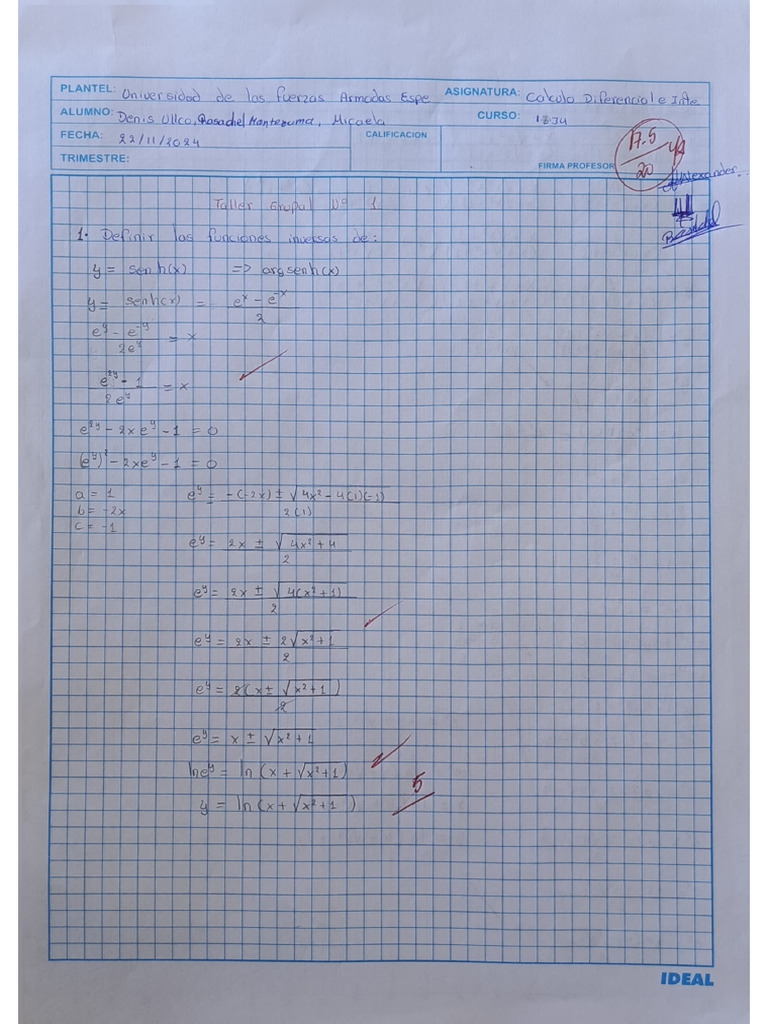 PLANTEL: Universidad de las fuerzas Armadas Espe ASIGNATURA: Calculo Diferencial e Inte
ALUMNO: Denis Ullco, Montezuma, Micaela CURSO: 1834
FECHA: 22/11/2024 CALIFICACION
TRIMESTRE: FIRMA PROFESOR
17.5
20
Taller Grupal Nº 1
1. Definir las funciones inversas de:
y = senh(x) => argsenh(x)
y = senh(x) = (e^x - e^-x)/2
(e^y - e^-y)/(2e^y) = x
(e^2y - 1)/(2e^y) = x
e^2y - 2xe^y - 1 = 0
(e^y)^2 - 2xe^y - 1 = 0
a = 1
b = -2x
c = -1
e^y = (-(-2x) ± √(4x² - 4(1)(-1)))/(2(1))
e^y = (2x ± √(4x² + 4))/2
e^y = (2x ± √(4(x²+1)))/2
e^y = (2x ± 2√(x²+1))/2
e^y = 2(x ± √(x²+1))/2
e^y = x ± √(x²+1)
lne^y = ln (x + √(x²+1))
y = ln (x + √(x²+1))
5
IDEAL